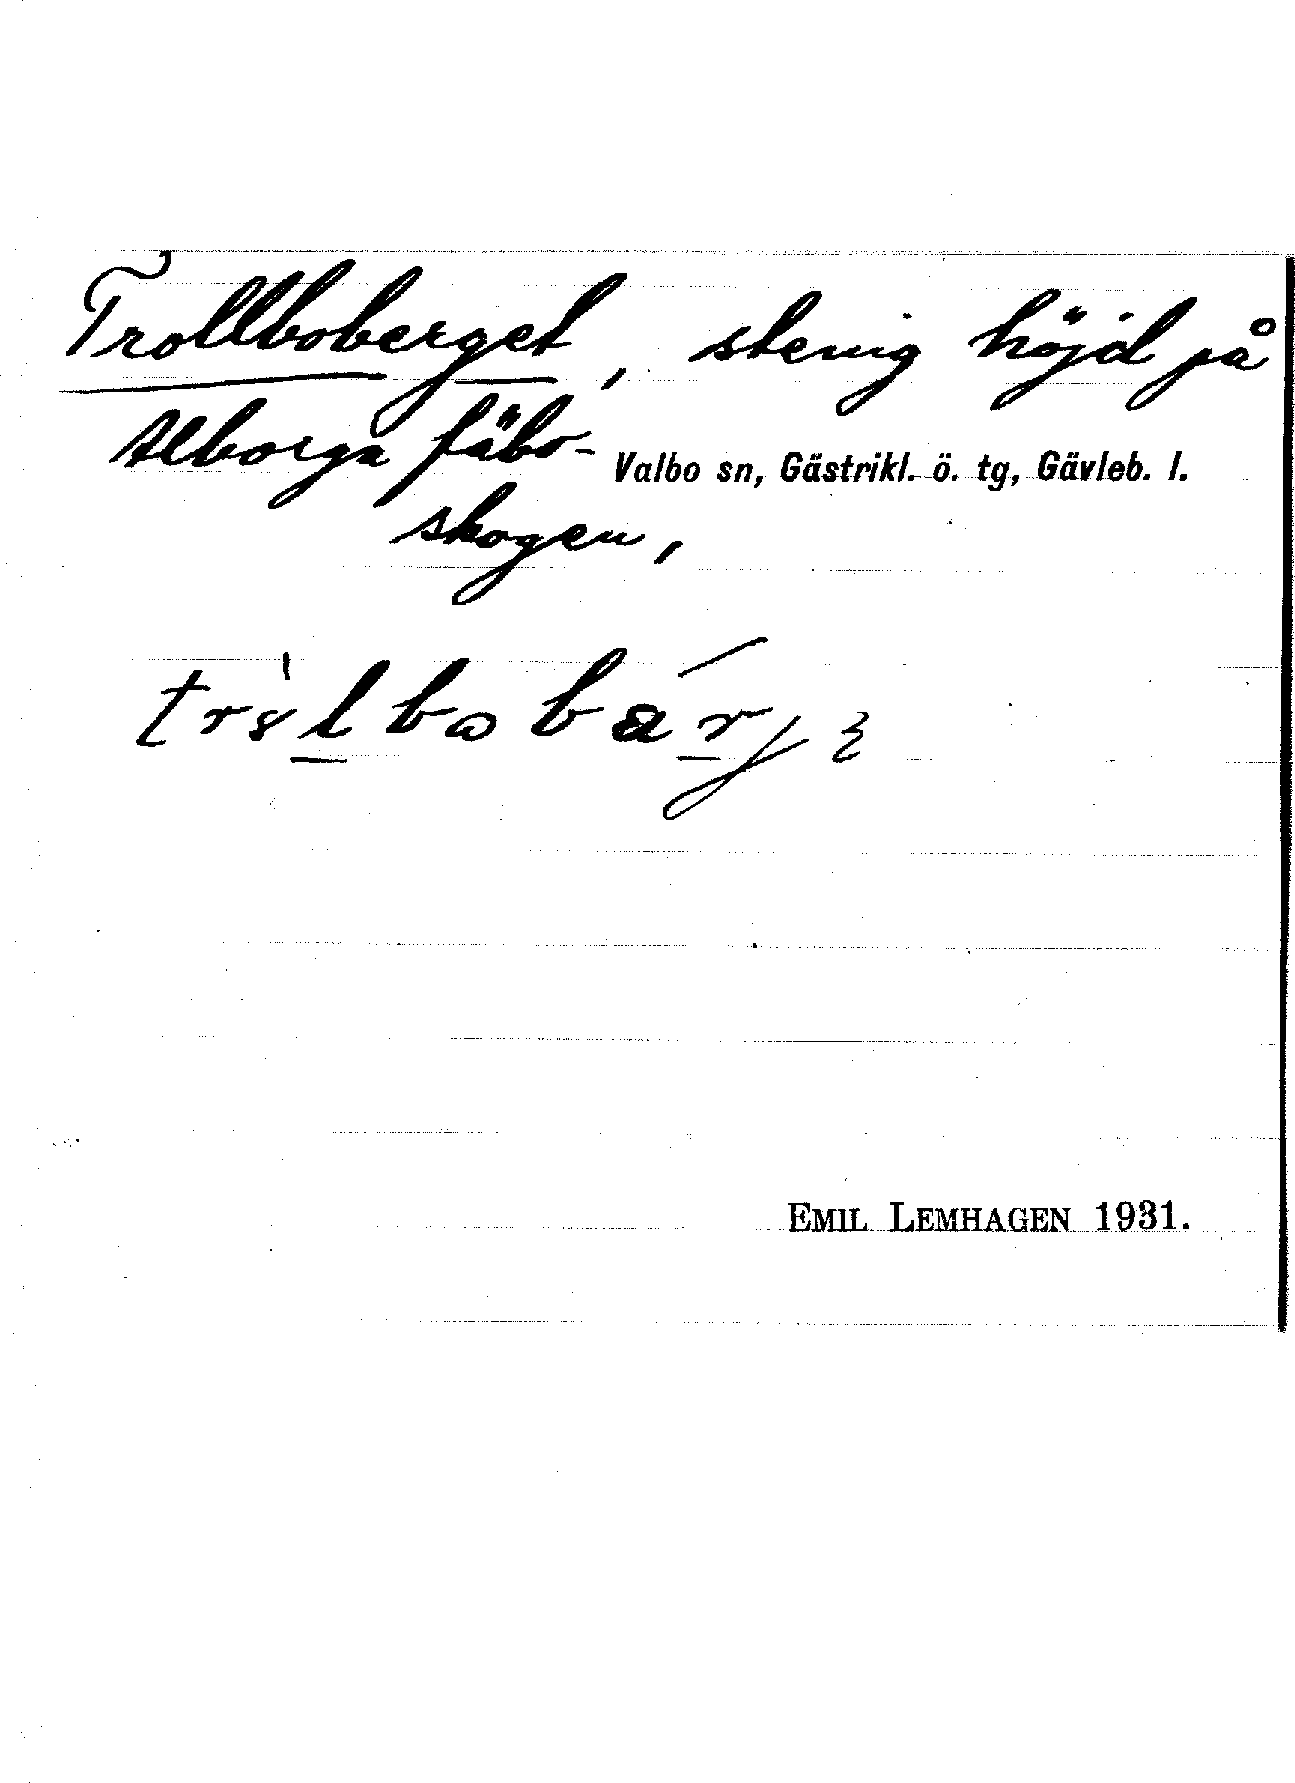 Trollboberget, stenig höjd på
Alborga fäbo-
Valbo sn, Gästrikl. ö. tg, Gävleb. l.
skogen,
EMIL LEMHAGEN 1931.